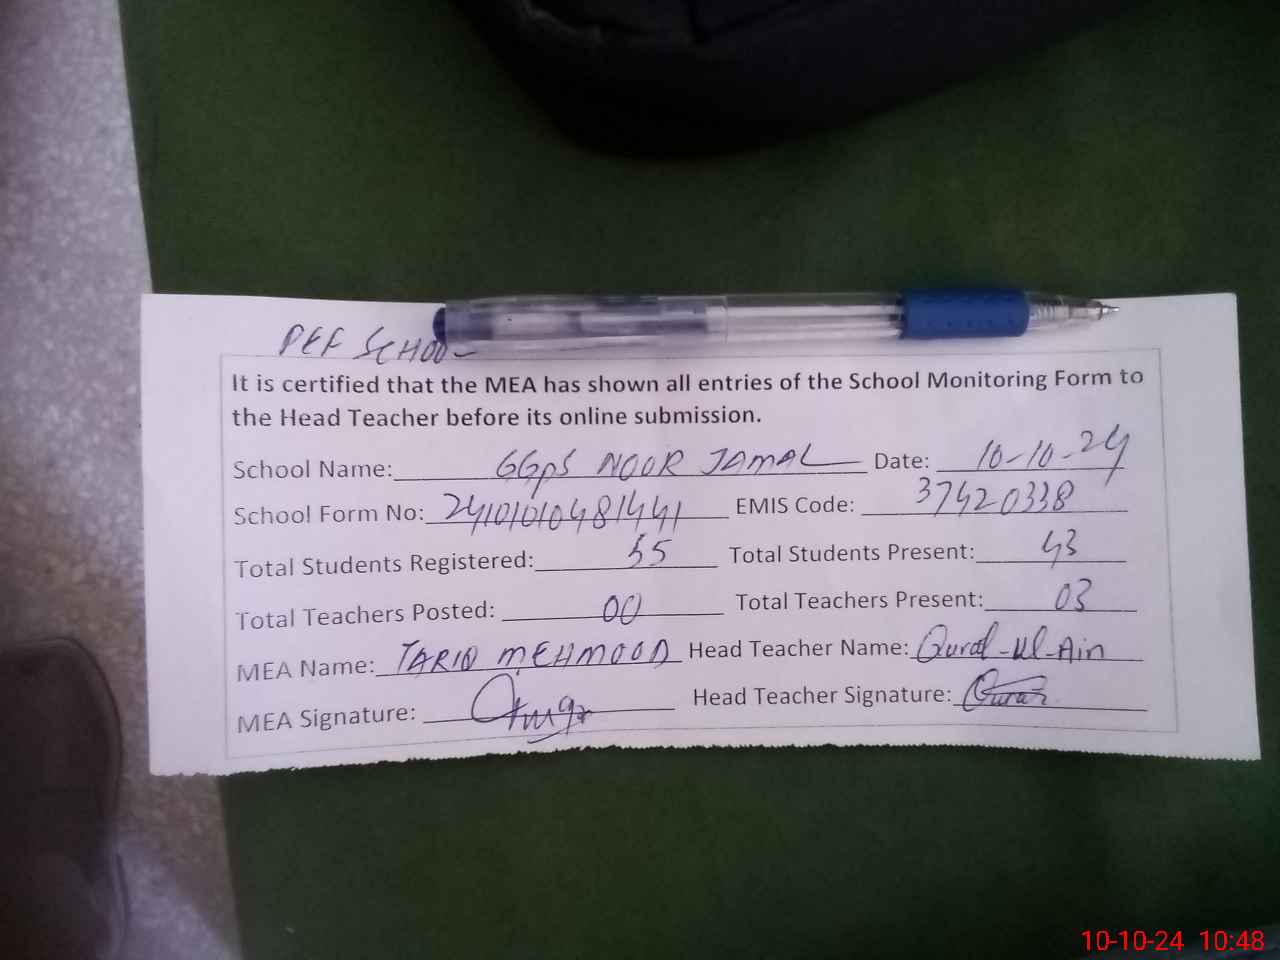 PEF SCHOOL
It is certified that the MEA has shown all entries of the School Monitoring Form to
the Head Teacher before its online submission.
School Name: GGPS NOOR JAMAL Date: 10-10-24
School Form No: 24101010481441 EMIS Code: 37420338
Total Students Registered: 55 Total Students Present: 43
Total Teachers Posted: 00 Total Teachers Present: 03
MEA Name: TARIQ MEHMOOD Head Teacher Name: Qurat-ul-Ain
MEA Signature: Head Teacher Signature:
10-10-24 10:48